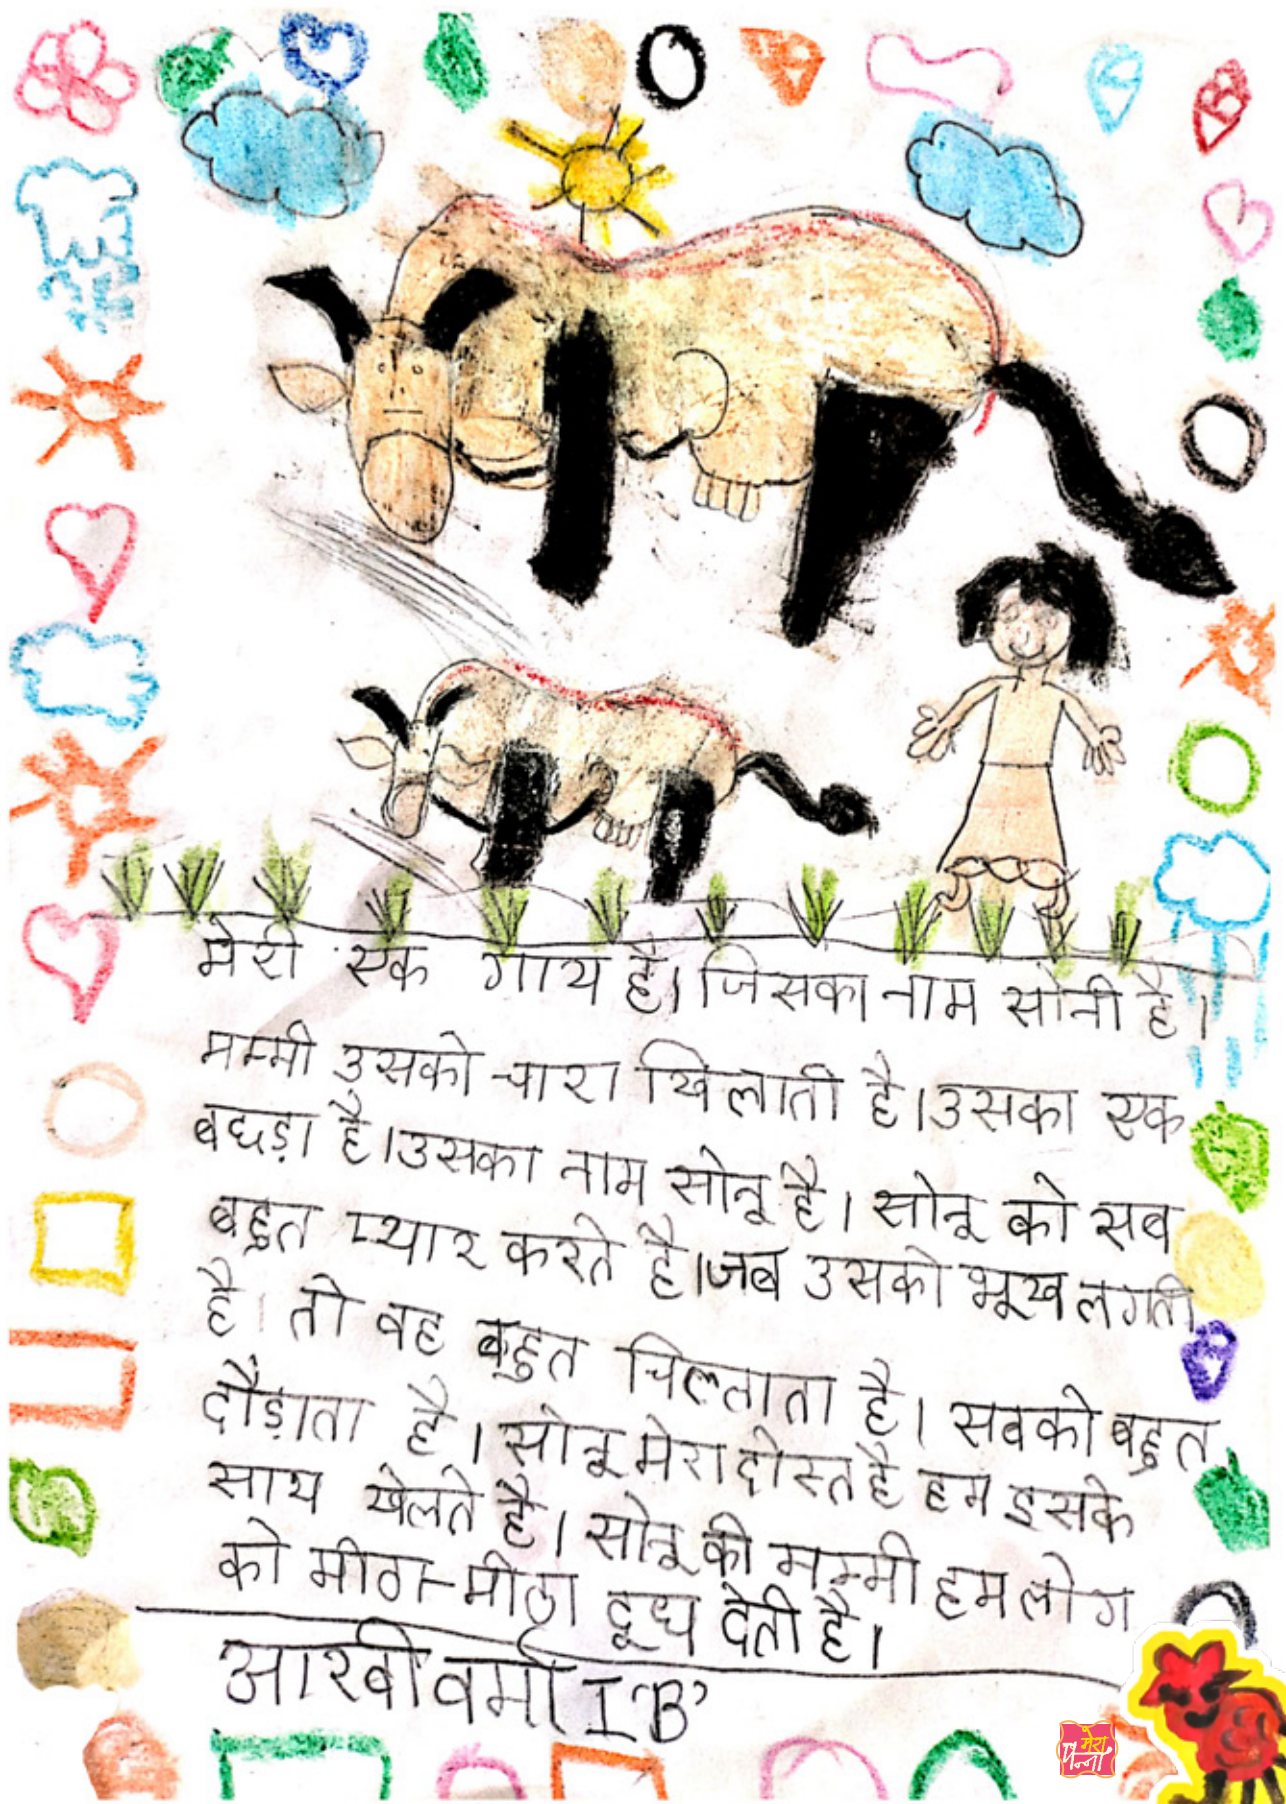 मेरी एक गाय है। जिसका नाम सोनी है।
मम्मी उसको चारा खिलाती है। उसका एक
बछड़ा है। उसका नाम सोनू है। सोनू को सब
बहुत प्यार करते है। जब उसको भूख लगती
है। तो वह बहुत चिल्लाता है। सबको बहुत
दौड़ाता है। सोनू मेरा दोस्त है हम इसके
साथ खेलते है। सोनू की मम्मी हम लोग
को मीठा-मीठा दूध देती है।
आरवी वर्मा I 'B'
मेरा
पन्ना